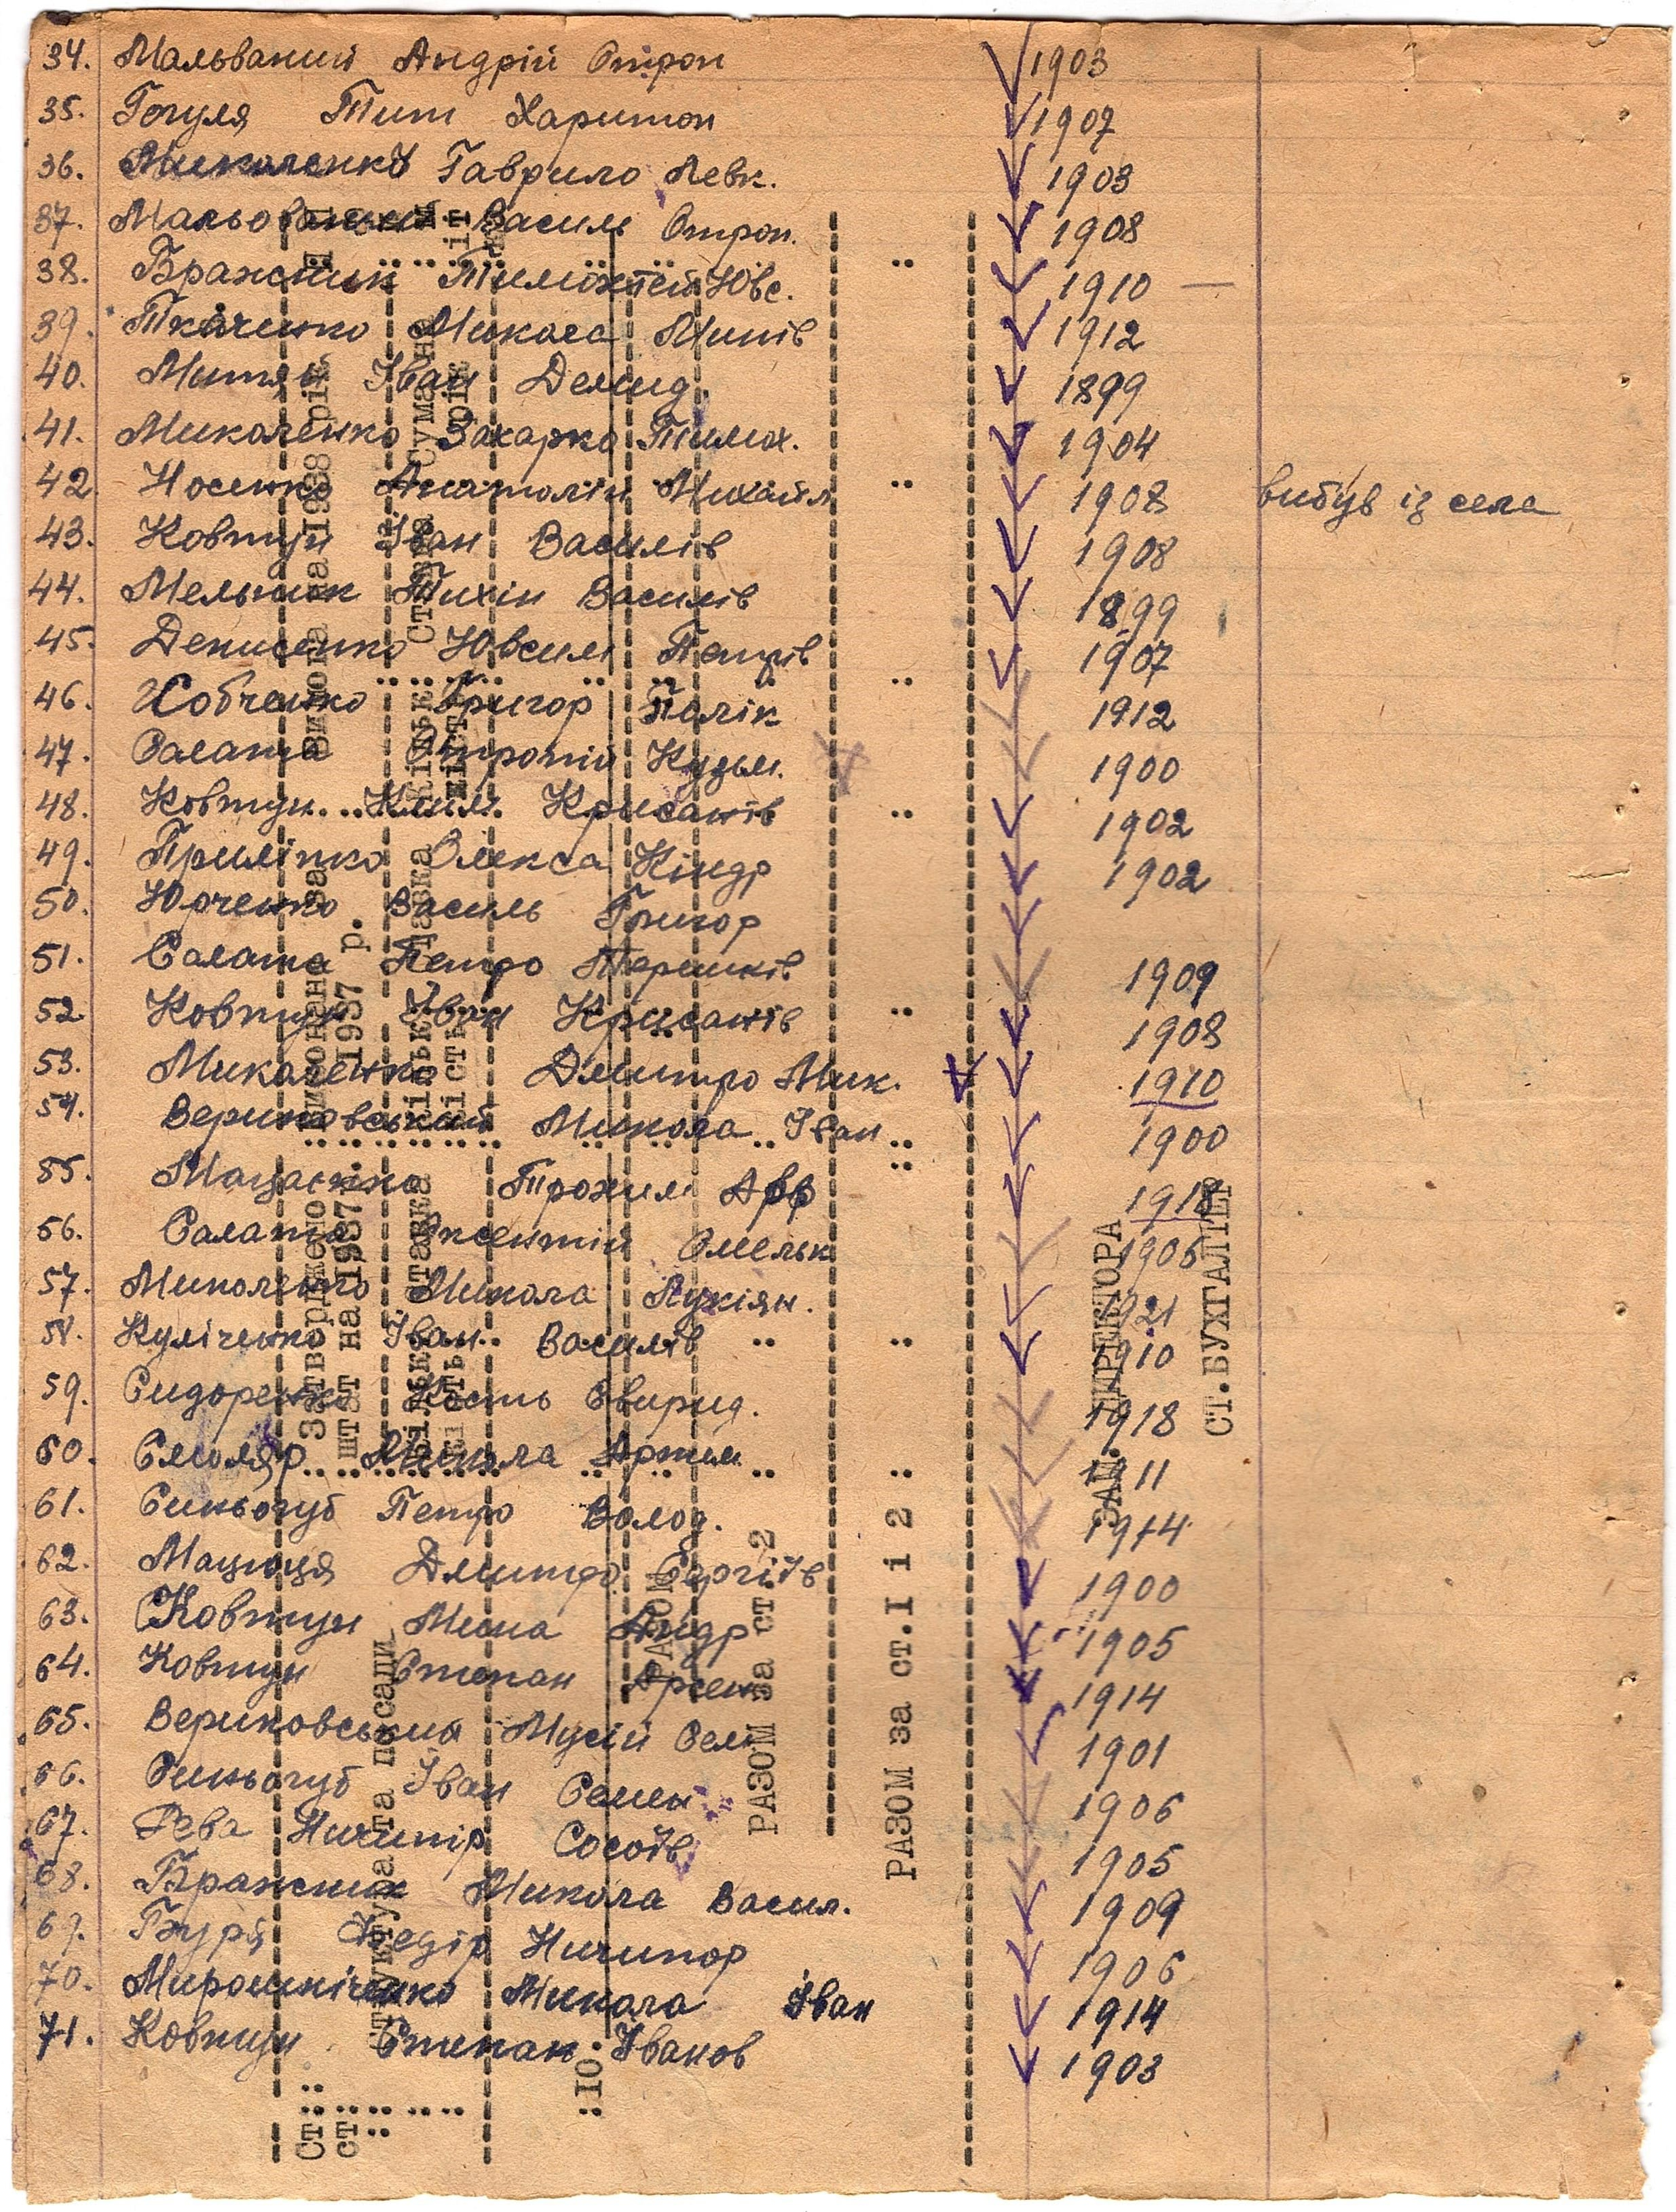 34. Мальваний Андрій Отрон 1903
35. Гогуля Тит Харитон 1907
36. Миколенко Гаврило Левк. 1903
37. Мальований Василь Отрон. 1908
38. Бражник Тимохтей Ювс. 1910 —
39. Ткаченко Микола Минів 1912
40. Митяй Іван Демид. 1899
41. Миколенко Захарко Тимох. 1904
42. Носенко Анатолій Михайл 1908 вибув із села
43. Ковтун Іван Василів 1908
44. Мельник Тихін Василів 1899
45. Денисенко Ювсим Петрів 1907
46. Собченко Григор Полік 1912
47. Салата Кузьм. 1900
48. Ковтун Клим Крисанів 1902
49. Приліпко Олекса Кіндр 1902
50. Юрченко Василь Григор
51. Салата Петро Терешків 1909
52. Ковтун Іван Крисанів 1908
53. Миколенко Дмитро Мик. 1910
54. Вериковський Микола Іван 1900
55. Трохим 1918
56. Салата Оксентій Омельк 1906
57. Миколенко Микола Лукіян. 1921
58. Куліченко Іван Василів 1910
59. Сидоренко Кость Свирид. 1918
60. Смоляр Микола Артем 1911
61. Синьогуб Петро Волод. 1914
62. Мацюця Дмитро Сергіїв 1900
63. Ковтун Мина Андр 1905
64. Ковтун Степан Арсен 1914
65. Вериковський Мусій Сем 1901
66. Синьогуб Іван Семен 1906
67. Рева Ничипір 1905
68. Бражник Микола Васил. 1909
69. Буря Федір Ничипор 1906
70. Мирошніченко Микола Іван 1914
71. Ковтун Степан Іванов 1903
на 1938 рік
1937 р.
штат на 1937
Структура та посади
РАЗОМ
РАЗОМ за ст. 2
РАЗОМ за ст.I і 2
ЗАМ. ДИРЕКТОРА
СТ.БУХГАЛТЕР
:10: